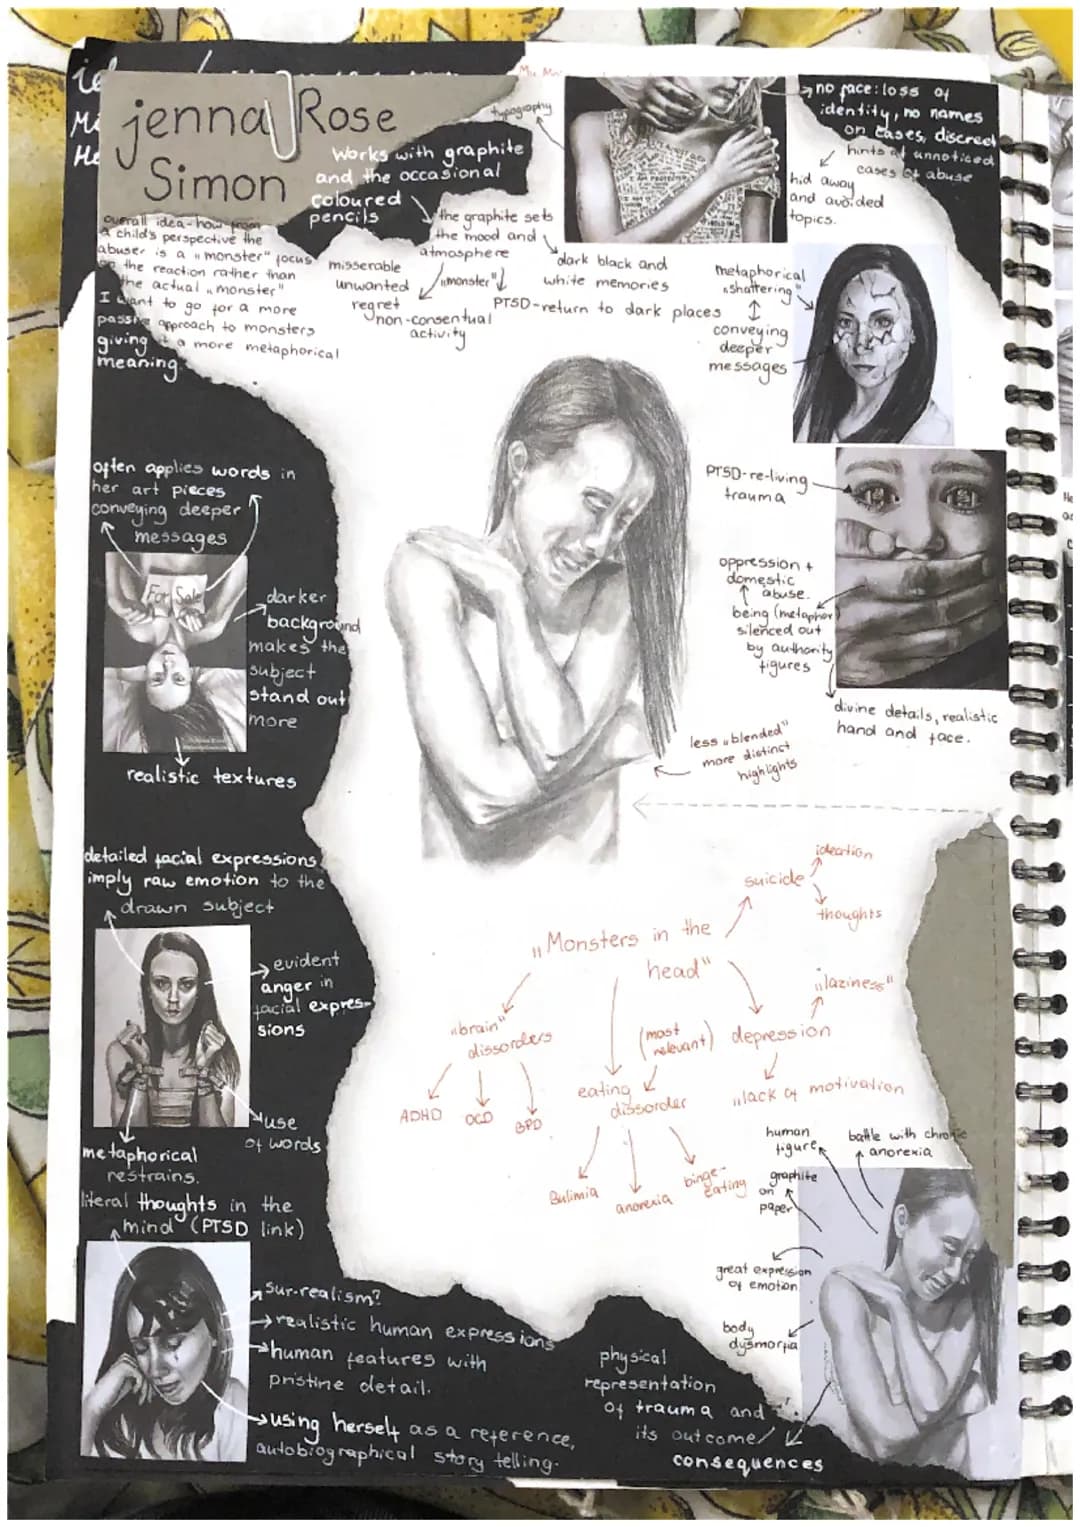 jenna Rose
Simon
Works with graphite
and the occasional
coloured
pencils
typography
no face: loss of
identity, no names
on cases, discreet
hints of unnoticed
cases of abuse
hid away
and avoided
topics.
overall idea - how from
a child's perspective the
abuser is a „monster" focus
on the reaction rather than
the actual „monster"
I want to go for a more
passive approach to monsters
giving it a more metaphorical
meaning.
the graphite sets
the mood and
atmosphere
misserable
unwanted
regret
non-consentual
activity
„monster"
dark black and
white memories
PTSD-return to dark places
metaphorical
„shattering"
conveying
deeper
messages
often applies words in
her art pieces
conveying deeper
messages
For Sale
darker
background
makes the
subject
stand out
more
realistic textures
PTSD-re-living
trauma
oppression +
domestic
abuse.
being (metaphor)
silenced out
by authority
figures
divine details, realistic
hand and face.
less „blended"
more distinct
highlights
detailed facial expressions
imply raw emotion to the
drawn subject
evident
anger in
facial expres-
sions
use
of words
metaphorical
restrains.
literal thoughts in the
mind (PTSD link)
sur-realism?
realistic human expressions
human features with
pristine detail.
using herself as a reference,
autobiographical story telling.
„Monsters in the
head"
suicide
ideation
thoughts
„brain"
dissorders
ADHD
OCD
BPD
(most
relevant)
eating
dissorder
Bulimia
anorexia
binge-
eating
depression
„laziness"
„lack of motivation
human
figure
battle with chronic
anorexia
graphite
on
paper
great expression
of emotion
body
dysmorfia
physical
representation
of trauma and
its outcome/
consequences